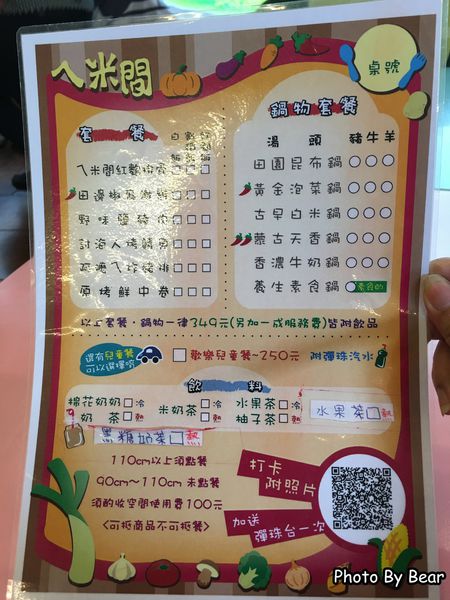 ㄟ米間
桌號
套餐
鍋物套餐
湯頭 豬牛羊
田園昆布鍋
黃金泡菜鍋
古早白米鍋
蒙古天香鍋
香濃牛奶鍋
養生素食鍋
ㄟ米間紅麴肉
野味鹽豬肉
討海人烤鯖魚
原烤鮮中卷
以上套餐、鍋物一律349元(另加一成服務費)皆附飲品
還有兒童餐
可以選擇唷
歡樂兒童餐~250元 附彈珠汽水
飲料
棉花奶奶 冷
奶茶 熱
米奶茶 冷 熱
水果茶 冷
柚子茶 熱
水果茶 熱
黑糖奶茶 熱
110cm以上須點餐
90cm~110cm 未點餐
須酌收空間使用費100元
<可抵商品不可抵餐>
打卡
附照片
加送
彈珠台一次
Photo By Bear